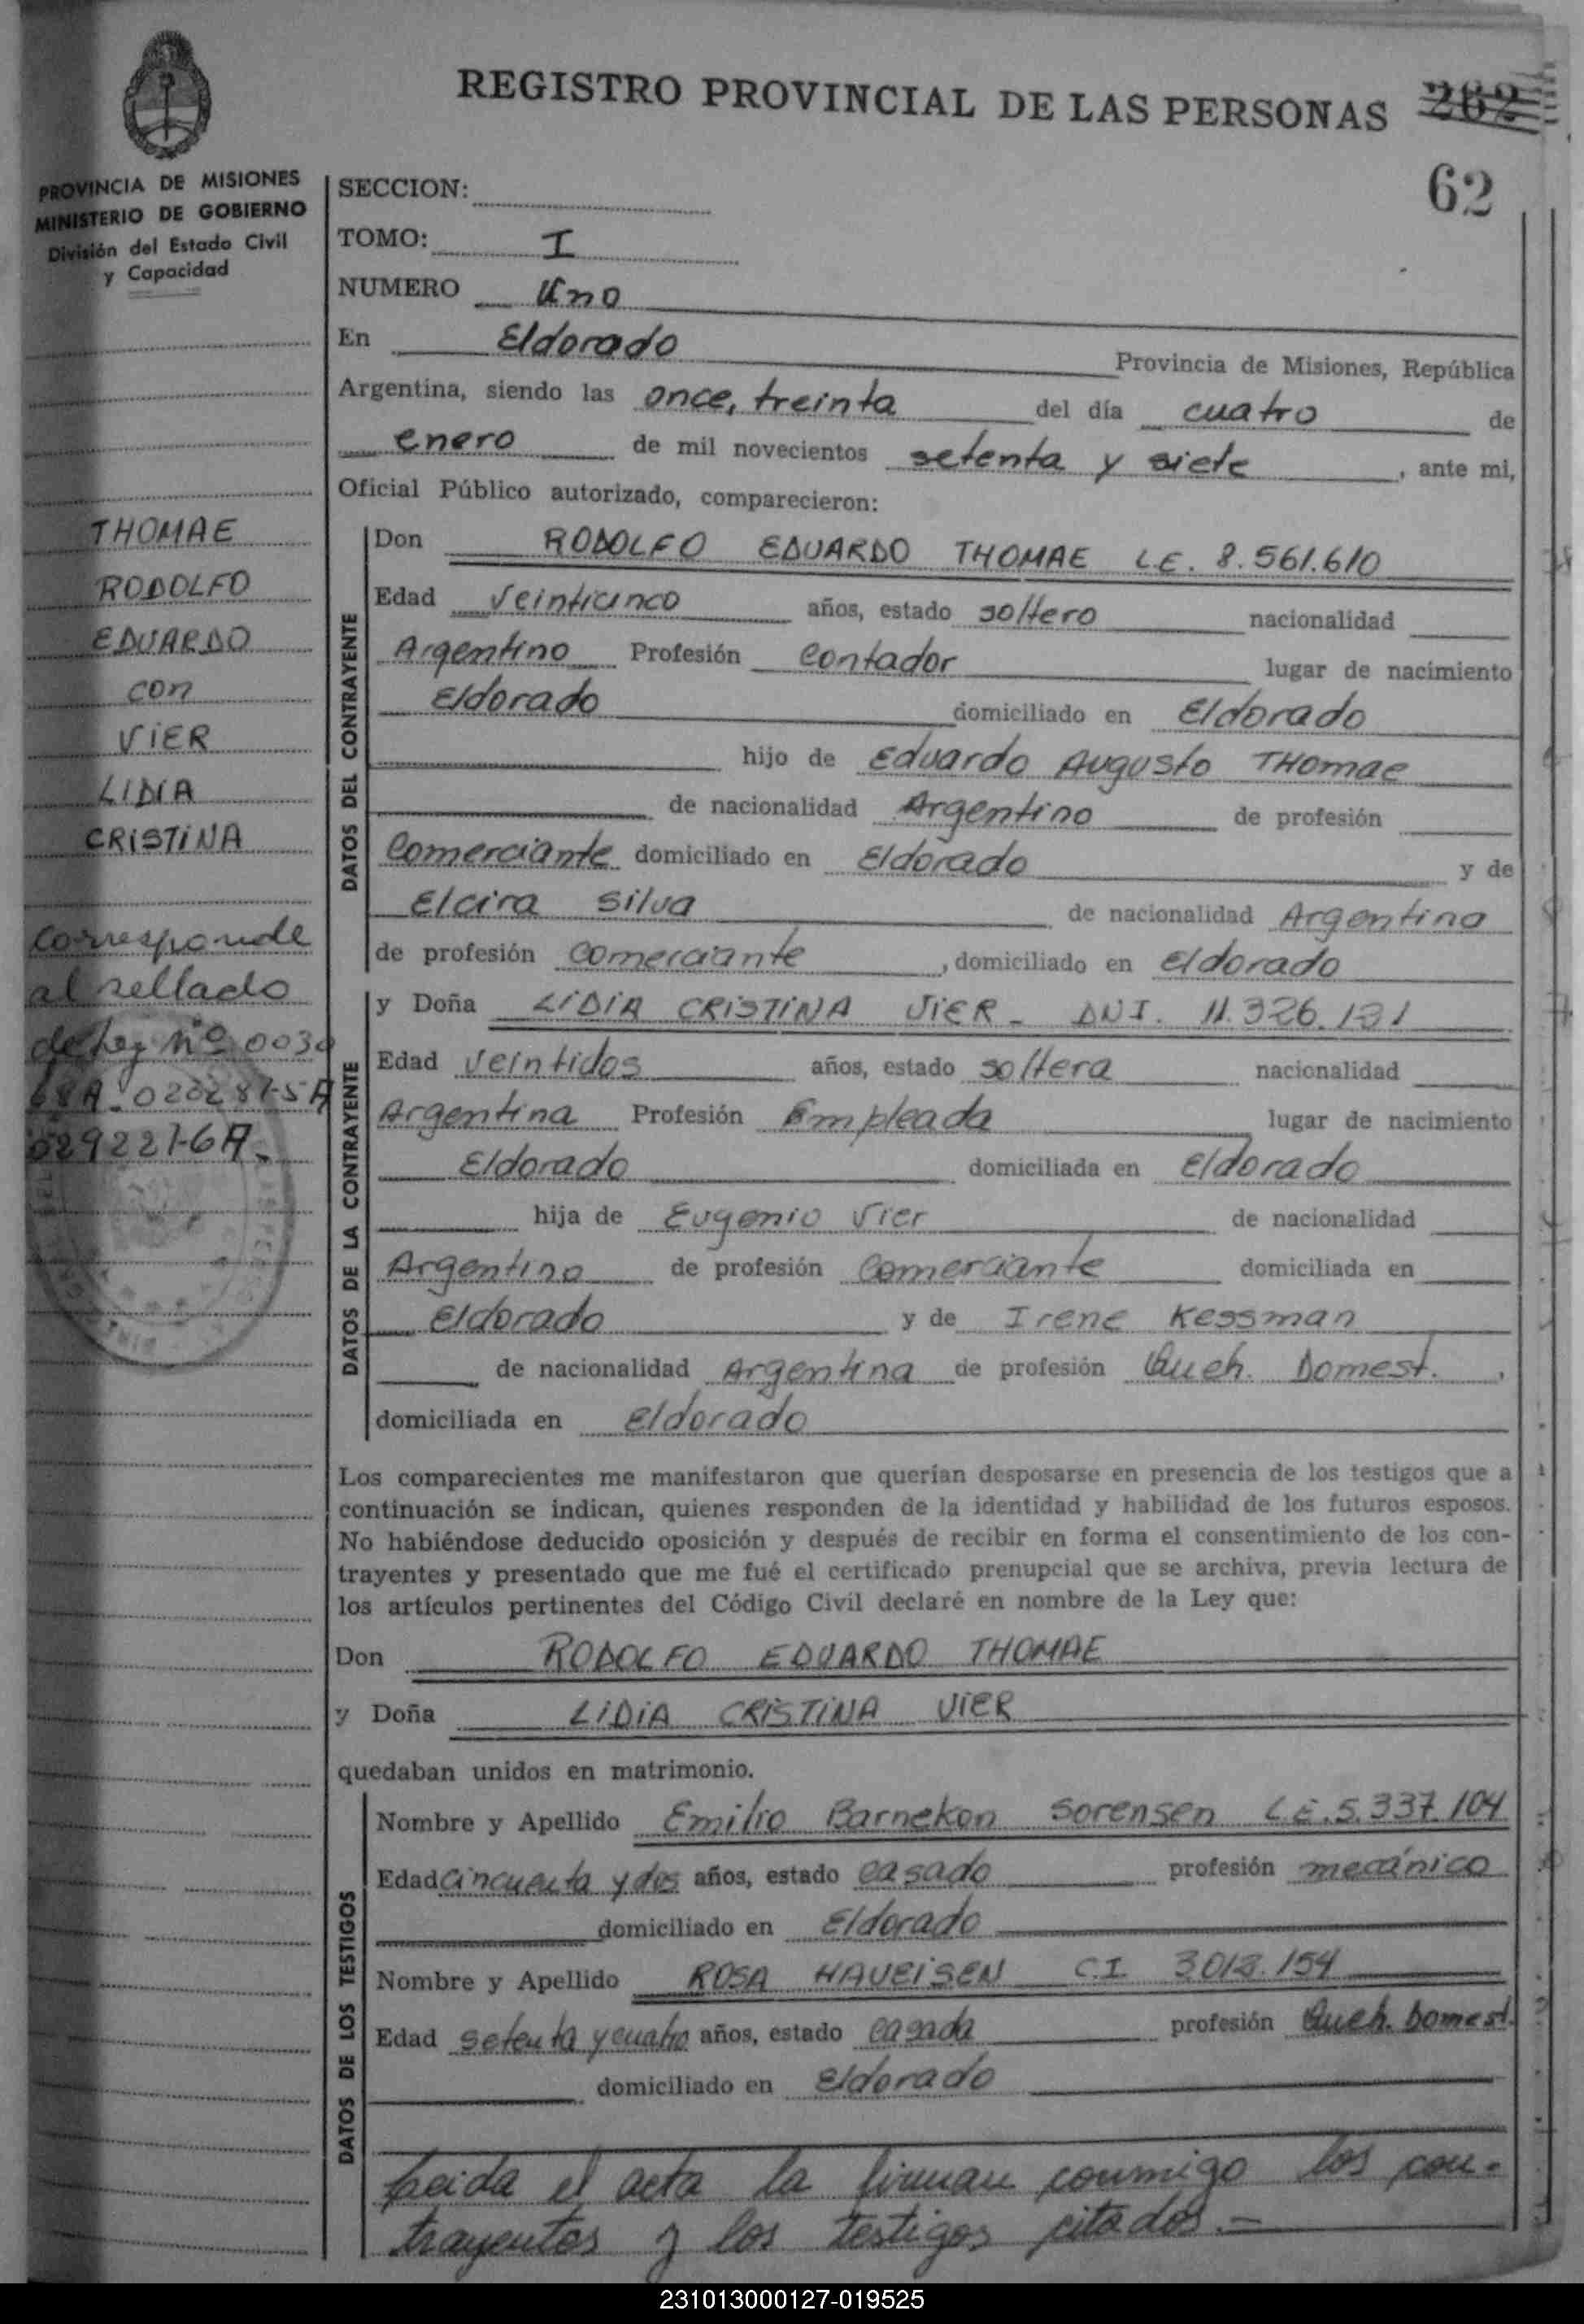 REGISTRO PROVINCIAL DE LAS PERSONAS 262
62
PROVINCIA DE MISIONES
MINISTERIO DE GOBIERNO
División del Estado Civil
y Capacidad
THOMAE
RODOLFO
EDUARDO
con
VIER
LIDIA
CRISTINA
Corresponde
al sellado
de Ley Nº 0030
68A-0202875A
029221-6A.
SECCION:
TOMO: I
NUMERO Uno
En Eldorado Provincia de Misiones, República
Argentina, siendo las once, treinta del día cuatro de
enero de mil novecientos setenta y siete, ante mi,
Oficial Público autorizado, comparecieron:
DATOS DEL CONTRAYENTE
Don RODOLFO EDUARDO THOMAE L.E. 8.561.610
Edad Veinticinco años, estado soltero nacionalidad
Argentino Profesión Contador lugar de nacimiento
Eldorado domiciliado en Eldorado
hijo de Eduardo Augusto THomae
de nacionalidad Argentino de profesión
Comerciante domiciliado en Eldorado y de
Elcira Silva de nacionalidad Argentina
de profesión Comerciante, domiciliado en Eldorado
DATOS DE LA CONTRAYENTE
y Doña LIDIA CRISTINA VIER - DNI. 11.326.131
Edad Veintidos años, estado soltera nacionalidad
Argentina Profesión Empleada lugar de nacimiento
Eldorado domiciliada en Eldorado
hija de Eugenio Vier de nacionalidad
Argentino de profesión Comerciante domiciliada en
Eldorado y de Irene Kessman
de nacionalidad Argentina de profesión Queh. Domest.,
domiciliada en Eldorado
Los comparecientes me manifestaron que querían desposarse en presencia de los testigos que a
continuación se indican, quienes responden de la identidad y habilidad de los futuros esposos.
No habiéndose deducido oposición y después de recibir en forma el consentimiento de los con-
trayentes y presentado que me fué el certificado prenupcial que se archiva, previa lectura de
los artículos pertinentes del Código Civil declaré en nombre de la Ley que:
Don RODOLFO EDUARDO THOMAE
y Doña LIDIA CRISTINA VIER
quedaban unidos en matrimonio.
DATOS DE LOS TESTIGOS
Nombre y Apellido Emilio Barnekon Sorensen L.E. 5.337.104
Edad cincuenta y dos años, estado casado profesión mecánico
domiciliado en Eldorado
Nombre y Apellido ROSA HAVEISEN C.I. 3013.154
Edad setenta y cuatro años, estado casada profesión Queh. Domest.
domiciliado en Eldorado
Leida el acta la firman conmigo los con-
trayentes y los testigos citados.-
231013000127-019525